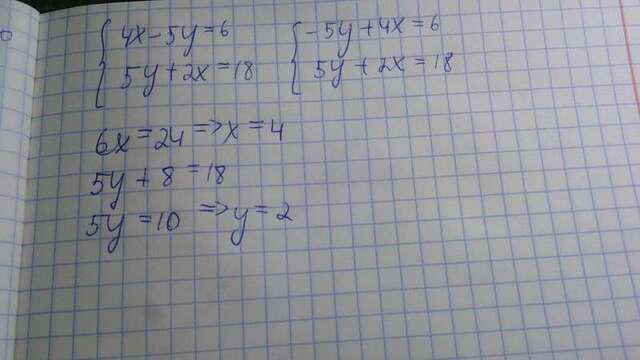 4x-5y=6 -5y+4x=6
5y+2x=18 5y+2x=18
6x=24=>x=4
5y+8=18
5y=10 =>y=2